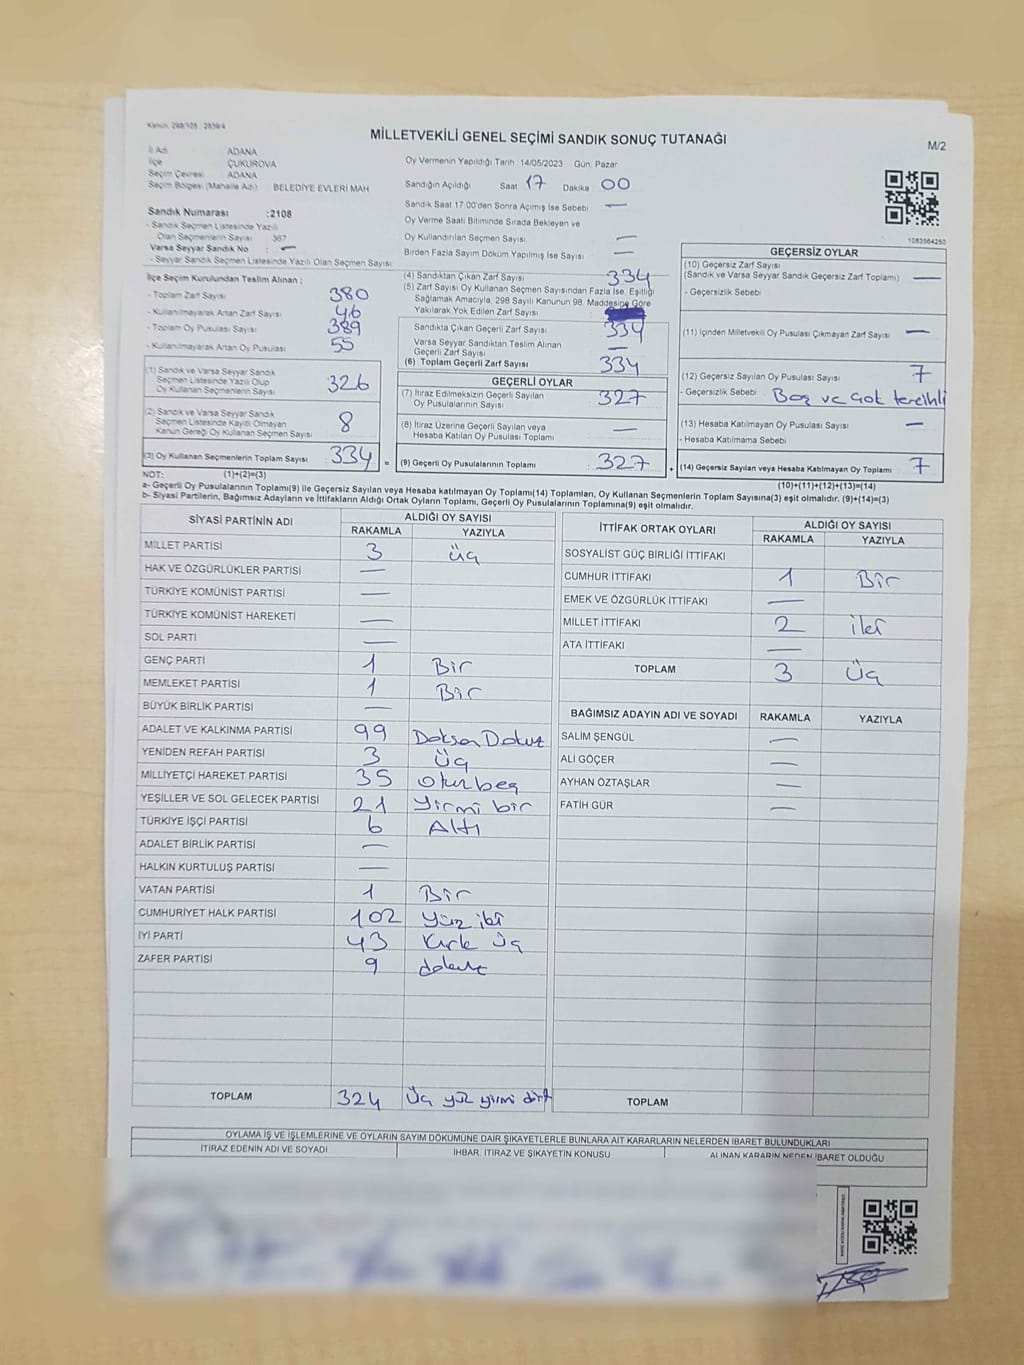 Kanun, 298/105 - 2839/4
MİLLETVEKİLİ GENEL SEÇİMİ SANDIK SONUÇ TUTANAĞI
M/2
İl Adı ADANA
İlçe ÇUKUROVA
Seçim Çevresi ADANA
Seçim Bölgesi (Mahalle Adı) BELEDİYE EVLERİ MAH
Sandık Numarası :2108
- Sandık Seçmen Listesinde Yazılı
Olan Seçmenlerin Sayısı 367
Varsa Seyyar Sandık No : —
- Seyyar Sandık Seçmen Listesinde Yazılı Olan Seçmen Sayısı:
Oy Vermenin Yapıldığı Tarih :14/05/2023 Gün: Pazar
Sandığın Açıldığı Saat 17 Dakika 00
Sandık Saat 17.00'den Sonra Açımış İse Sebebi —
Oy Verme Saati Bitiminde Sırada Bekleyen ve
Oy Kullandırılan Seçmen Sayısı —
Birden Fazla Sayım Döküm Yapılmış İse Sayısı —
1083564250
İlçe Seçim Kurulundan Teslim Alınan ;
- Toplam Zarf Sayısı 380
- Kullanılmayarak Artan Zarf Sayısı 46
- Toplam Oy Pusulası Sayısı 389
- Kullanılmayarak Artan Oy Pusulası 55
(1) Sandık ve Varsa Seyyar Sandık
Seçmen Listesinde Yazılı Olup
Oy Kullanan Seçmenlerin Sayısı 326
(2) Sandık ve Varsa Seyyar Sandık
Seçmen Listesinde Kayıtlı Olmayan
Kanun Gereği Oy Kullanan Seçmen Sayısı 8
(3) Oy Kullanan Seçmenlerin Toplam Sayısı 334 =
(4) Sandıktan Çıkan Zarf Sayısı 334
(5) Zarf Sayısı Oy Kullanan Seçmen Sayısından Fazla İse, Eşitliği
Sağlamak Amacıyla, 298 Sayılı Kanunun 98. Maddesine Göre
Yakılarak Yok Edilen Zarf Sayısı
Sandıkta Çıkan Geçerli Zarf Sayısı 334
Varsa Seyyar Sandıktan Teslim Alınan
Geçerli Zarf Sayısı —
(6) Toplam Geçerli Zarf Sayısı 334
GEÇERLİ OYLAR
(7) İtiraz Edilmeksizin Geçerli Sayılan
Oy Pusulalarının Sayısı 327
(8) İtiraz Üzerine Geçerli Sayılan veya
Hesaba Katılan Oy Pusulası Toplamı —
(9) Geçerli Oy Pusulalarının Toplamı 327 +
GEÇERSİZ OYLAR
(10) Geçersiz Zarf Sayısı
(Sandık ve Varsa Seyyar Sandık Geçersiz Zarf Toplamı) —
- Geçersizlik Sebebi
(11) İçinden Milletvekili Oy Pusulası Çıkmayan Zarf Sayısı —
(12) Geçersiz Sayılan Oy Pusulası Sayısı 7
- Geçersizlik Sebebi Boş ve Çok tercihli
(13) Hesaba Katılmayan Oy Pusulası Sayısı —
- Hesaba Katılmama Sebebi
(14) Geçersiz Sayılan veya Hesaba Katılmayan Oy Toplamı 7
NOT: (1)+(2)=(3) (10)+(11)+(12)+(13)=(14)
a- Geçerli Oy Pusulalarının Toplamı(9) ile Geçersiz Sayılan veya Hesaba katılmayan Oy Toplamı(14) Toplamları, Oy Kullanan Seçmenlerin Toplam Sayısına(3) eşit olmalıdır. (9)+(14)=(3)
b- Siyasi Partilerin, Bağımsız Adayların ve İttifakların Aldığı Ortak Oyların Toplamı, Geçerli Oy Pusulalarının Toplamına(9) eşit olmalıdır.
SİYASİ PARTİNİN ADI ALDIĞI OY SAYISI
RAKAMLA YAZIYLA
MİLLET PARTİSİ 3 üç
HAK VE ÖZGÜRLÜKLER PARTİSİ —
TÜRKİYE KOMÜNİST PARTİSİ —
TÜRKİYE KOMÜNİST HAREKETİ —
SOL PARTİ —
GENÇ PARTİ 1 Bir
MEMLEKET PARTİSİ 1 Bir
BÜYÜK BİRLİK PARTİSİ —
ADALET VE KALKINMA PARTİSİ 99 Doksan Dokuz
YENİDEN REFAH PARTİSİ 3 üç
MİLLİYETÇİ HAREKET PARTİSİ 35 otuzbeş
YEŞİLLER VE SOL GELECEK PARTİSİ 21 Yirmi bir
TÜRKİYE İŞÇİ PARTİSİ 6 Altı
ADALET BİRLİK PARTİSİ —
HALKIN KURTULUŞ PARTİSİ —
VATAN PARTİSİ 1 Bir
CUMHURİYET HALK PARTİSİ 102 Yüz iki
İYİ PARTİ 43 Kırk üç
ZAFER PARTİSİ 9 dokuz
TOPLAM 324 üç yüz yirmi dört
İTTİFAK ORTAK OYLARI ALDIĞI OY SAYISI
RAKAMLA YAZIYLA
SOSYALİST GÜÇ BİRLİĞİ İTTİFAKI
CUMHUR İTTİFAKI 1 Bir
EMEK VE ÖZGÜRLÜK İTTİFAKI —
MİLLET İTTİFAKI 2 iki
ATA İTTİFAKI —
TOPLAM 3 üç
BAĞIMSIZ ADAYIN ADI VE SOYADI RAKAMLA YAZIYLA
SALİM ŞENGÜL —
ALİ GÖÇER —
AYHAN ÖZTAŞLAR —
FATİH GÜR —
TOPLAM
OYLAMA İŞ VE İŞLEMLERİNE VE OYLARIN SAYIM DÖKÜMÜNE DAİR ŞİKAYETLERLE BUNLARA AİT KARARLARIN NELERDEN İBARET BULUNDUKLARI
İTİRAZ EDENİN ADI VE SOYADI İHBAR, İTİRAZ VE ŞİKAYETİN KONUSU ALINAN KARARIN NEDEN İBARET OLDUĞU